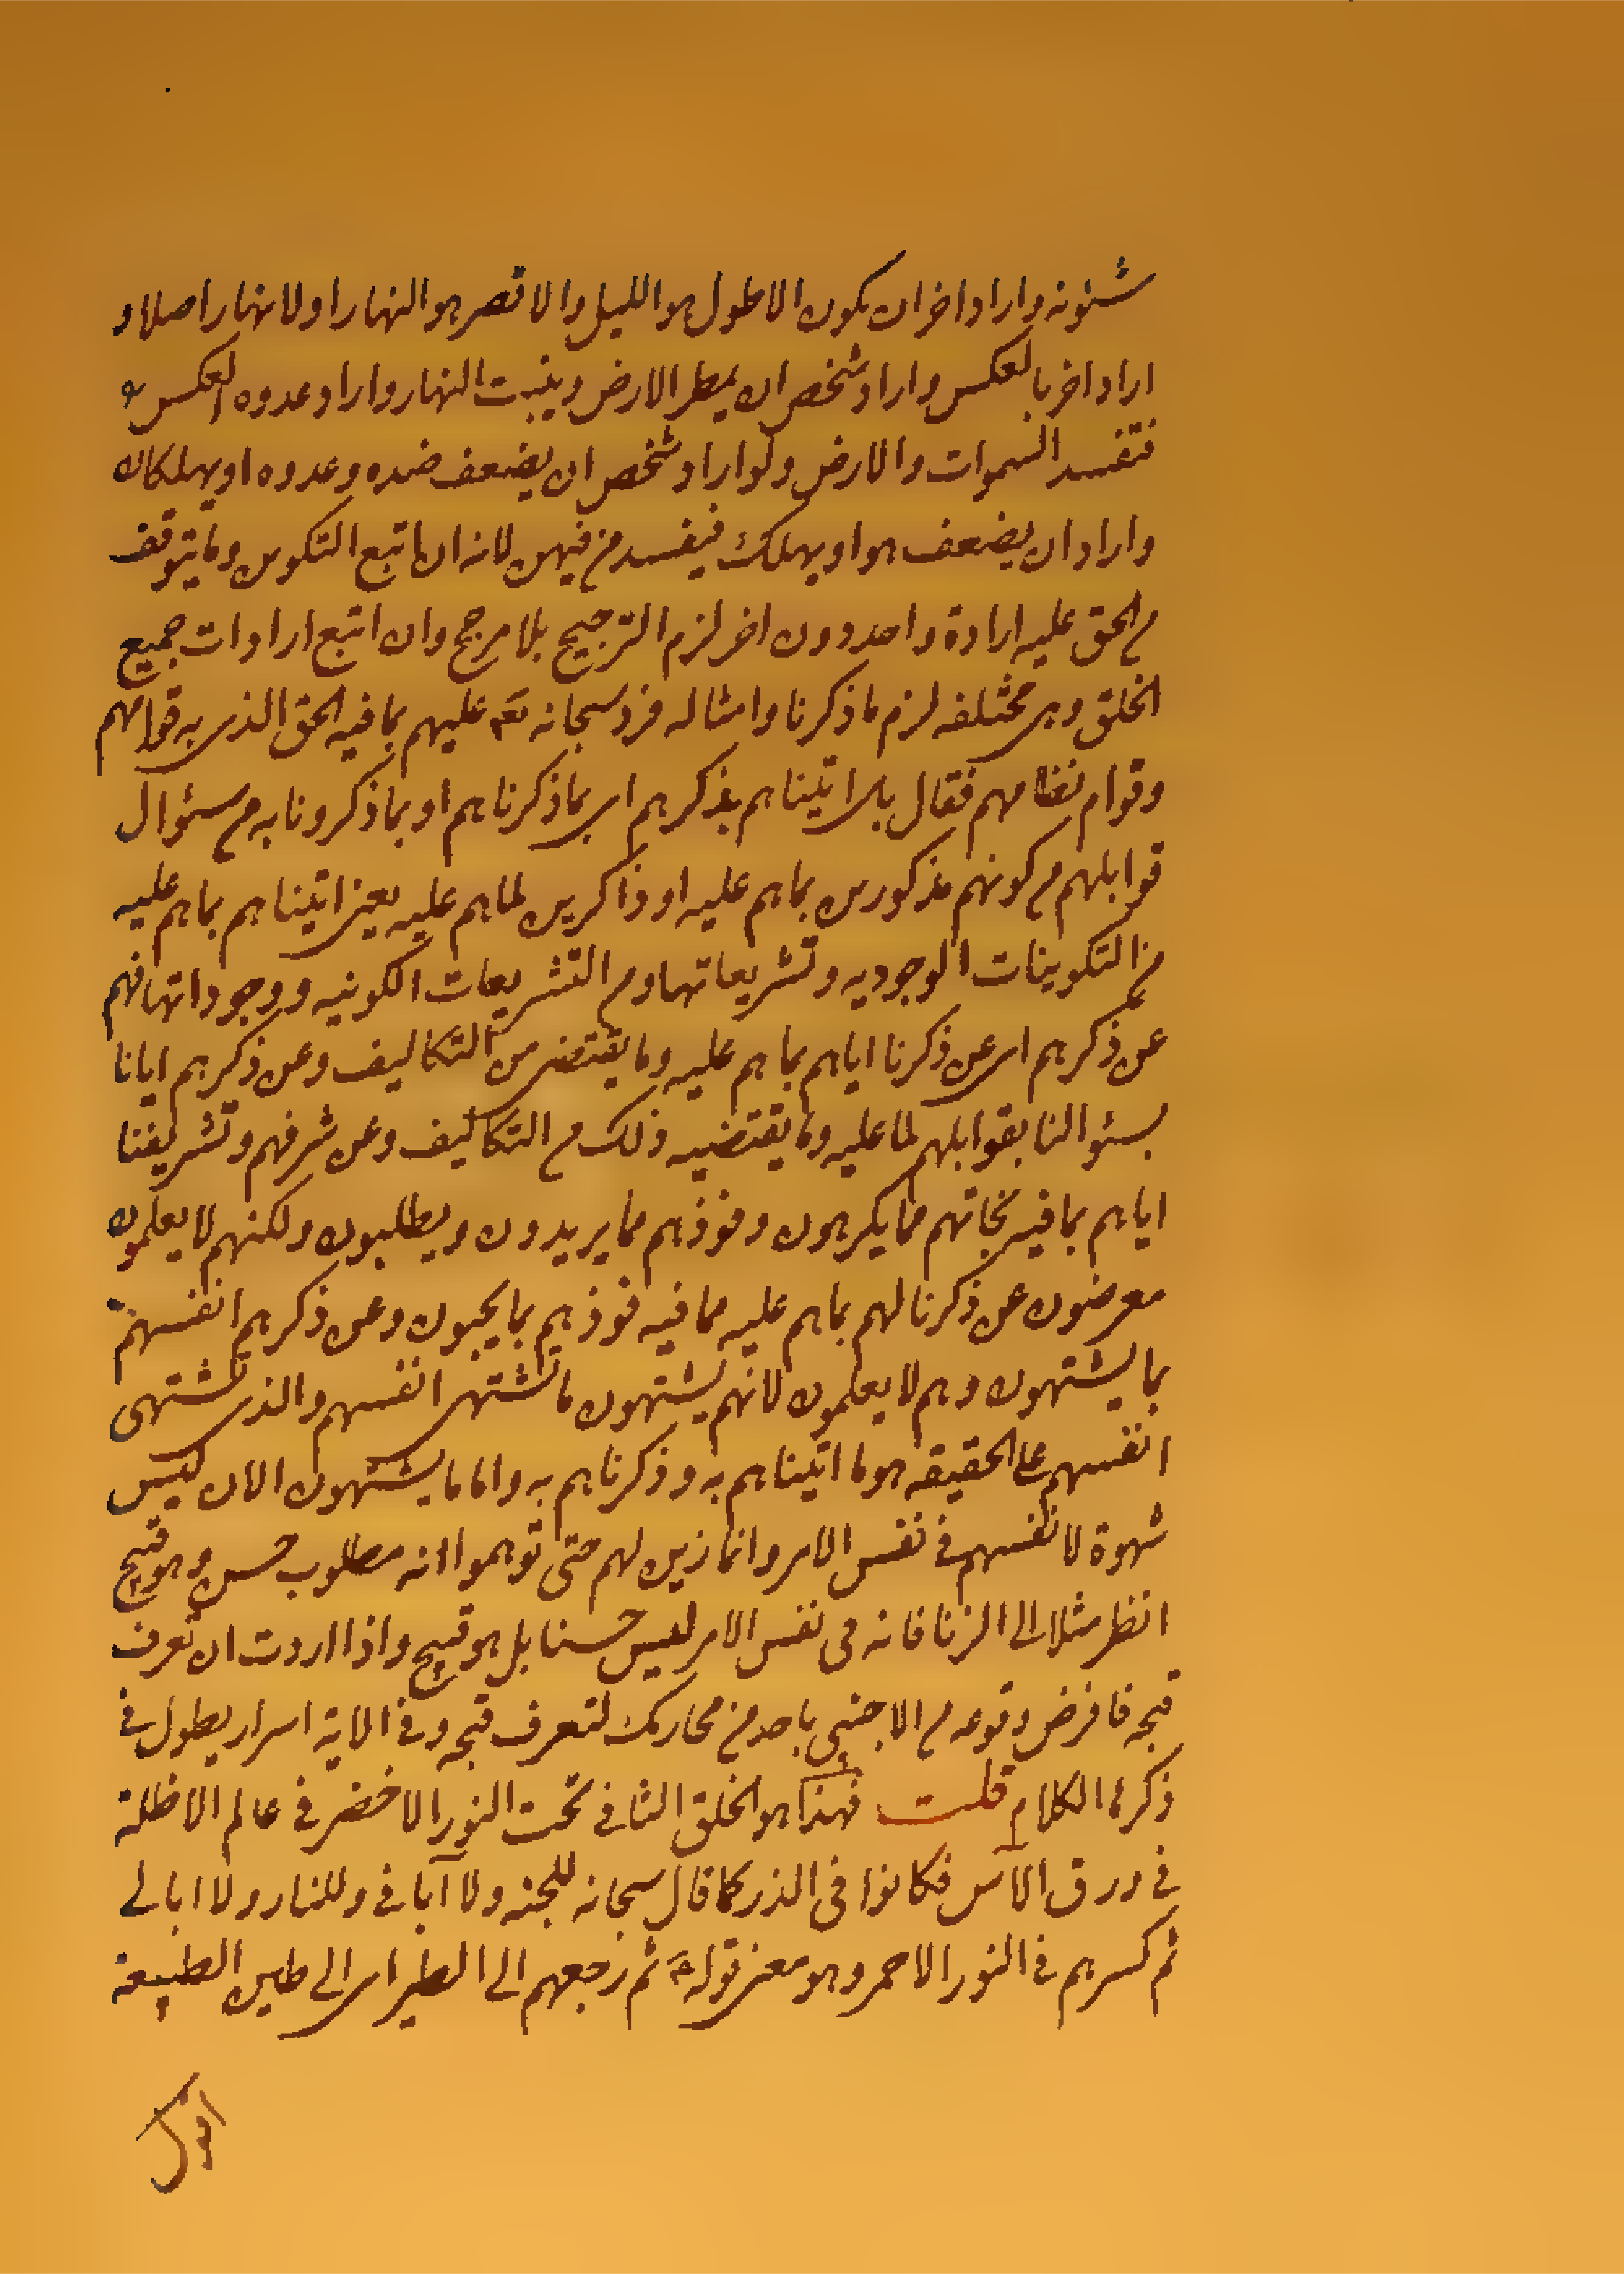 شئونه واراد اخر ان يكون الاطول هو الليل والاقصر هو النهار اولا نهار اصلا و
اراد اخر بالعكس واراد شخص ان يمطر الارض وينبت النهار واراد عدوه العكس
فتفسد السموات والارض ولو اراد شخص ان يضعف ضده وعدوه او يهلكان
واراد ان يضعف هو او يهلك فيفسد من فيهن لانه ان اتبع التكوين وما يتوقف
م الحق عليه ارادة واحد دون اخر لزم الترجيح بلا مرجح وان اتبع ارادات جميع
الخلق وهى مختلفه لزم ما ذكرنا وامثاله فرد سبحانه تعم عليهم بما فيه الحق الذى به قوامهم
وقوام نظامهم فقال بل اتيناهم بذكرهم اى بما ذكرناهم او بما ذكرونا به م سئوال
قوابلهم م كونهم مذكورين بما هم عليه او ذاكرين لما هم عليه يعنى اتيناهم بما هم عليه
من التكوينات الوجوديه وتشريعاتها وم التشريعات الكونيه ووجوداتها فهم
عن ذكرهم اى عن ذكرنا اياهم بما هم عليه وما يقتضى من التكاليف وعن ذكرهم ايانا
بسئوالنا بقوابلهم لما عليه وما يقتضيه ذلك م التكاليف وعن شرفهم وتشريفنا
اياهم بما فيه نجاتهم مما يكرهون وفوذهم مما يريدون ويطلبون ولكنهم لا يعلمون
معرضون عن ذكرنا لهم بما هم عليه مما فيه فوذهم بما يحبون وعن ذكرهم انفسهم
بما يشتهون وهم لا يعلمون لانهم يشتهون ما تشتهى انفسهم والذى تشتهى
انفسهم على الحقيقه هو ما اتيناهم به وذكرناهم به واما ما يشتهون الان ليس
شهوة لانفسهم فى نفس الامر وانما زين لهم حتى توهموا انه مطلوب حسن وهو قبيح
انظر مثلا الى الزنا فانه فى نفس الامر ليس حسنا بل هو قبيح واذا اردت ان تعرف
قبحه فافرض وقوعه م الاجنبى باحد من محارمك لتعرف قبحه وفى الاية اسرار يطول فى
ذكرها الكلام قلت فهذا هو الخلق الثانى تحت النور الاخضر فى عالم الاظلة
فى ورق الآس فكانوا فى الذر كما قال سبحانه للجنه ولا آبالى وللنار ولا ابالى
ثم كسرهم فى النور الاحمر وهو معنى قوله ثم رجعهم الى الطين اى الى طين الطبيعة
اقول